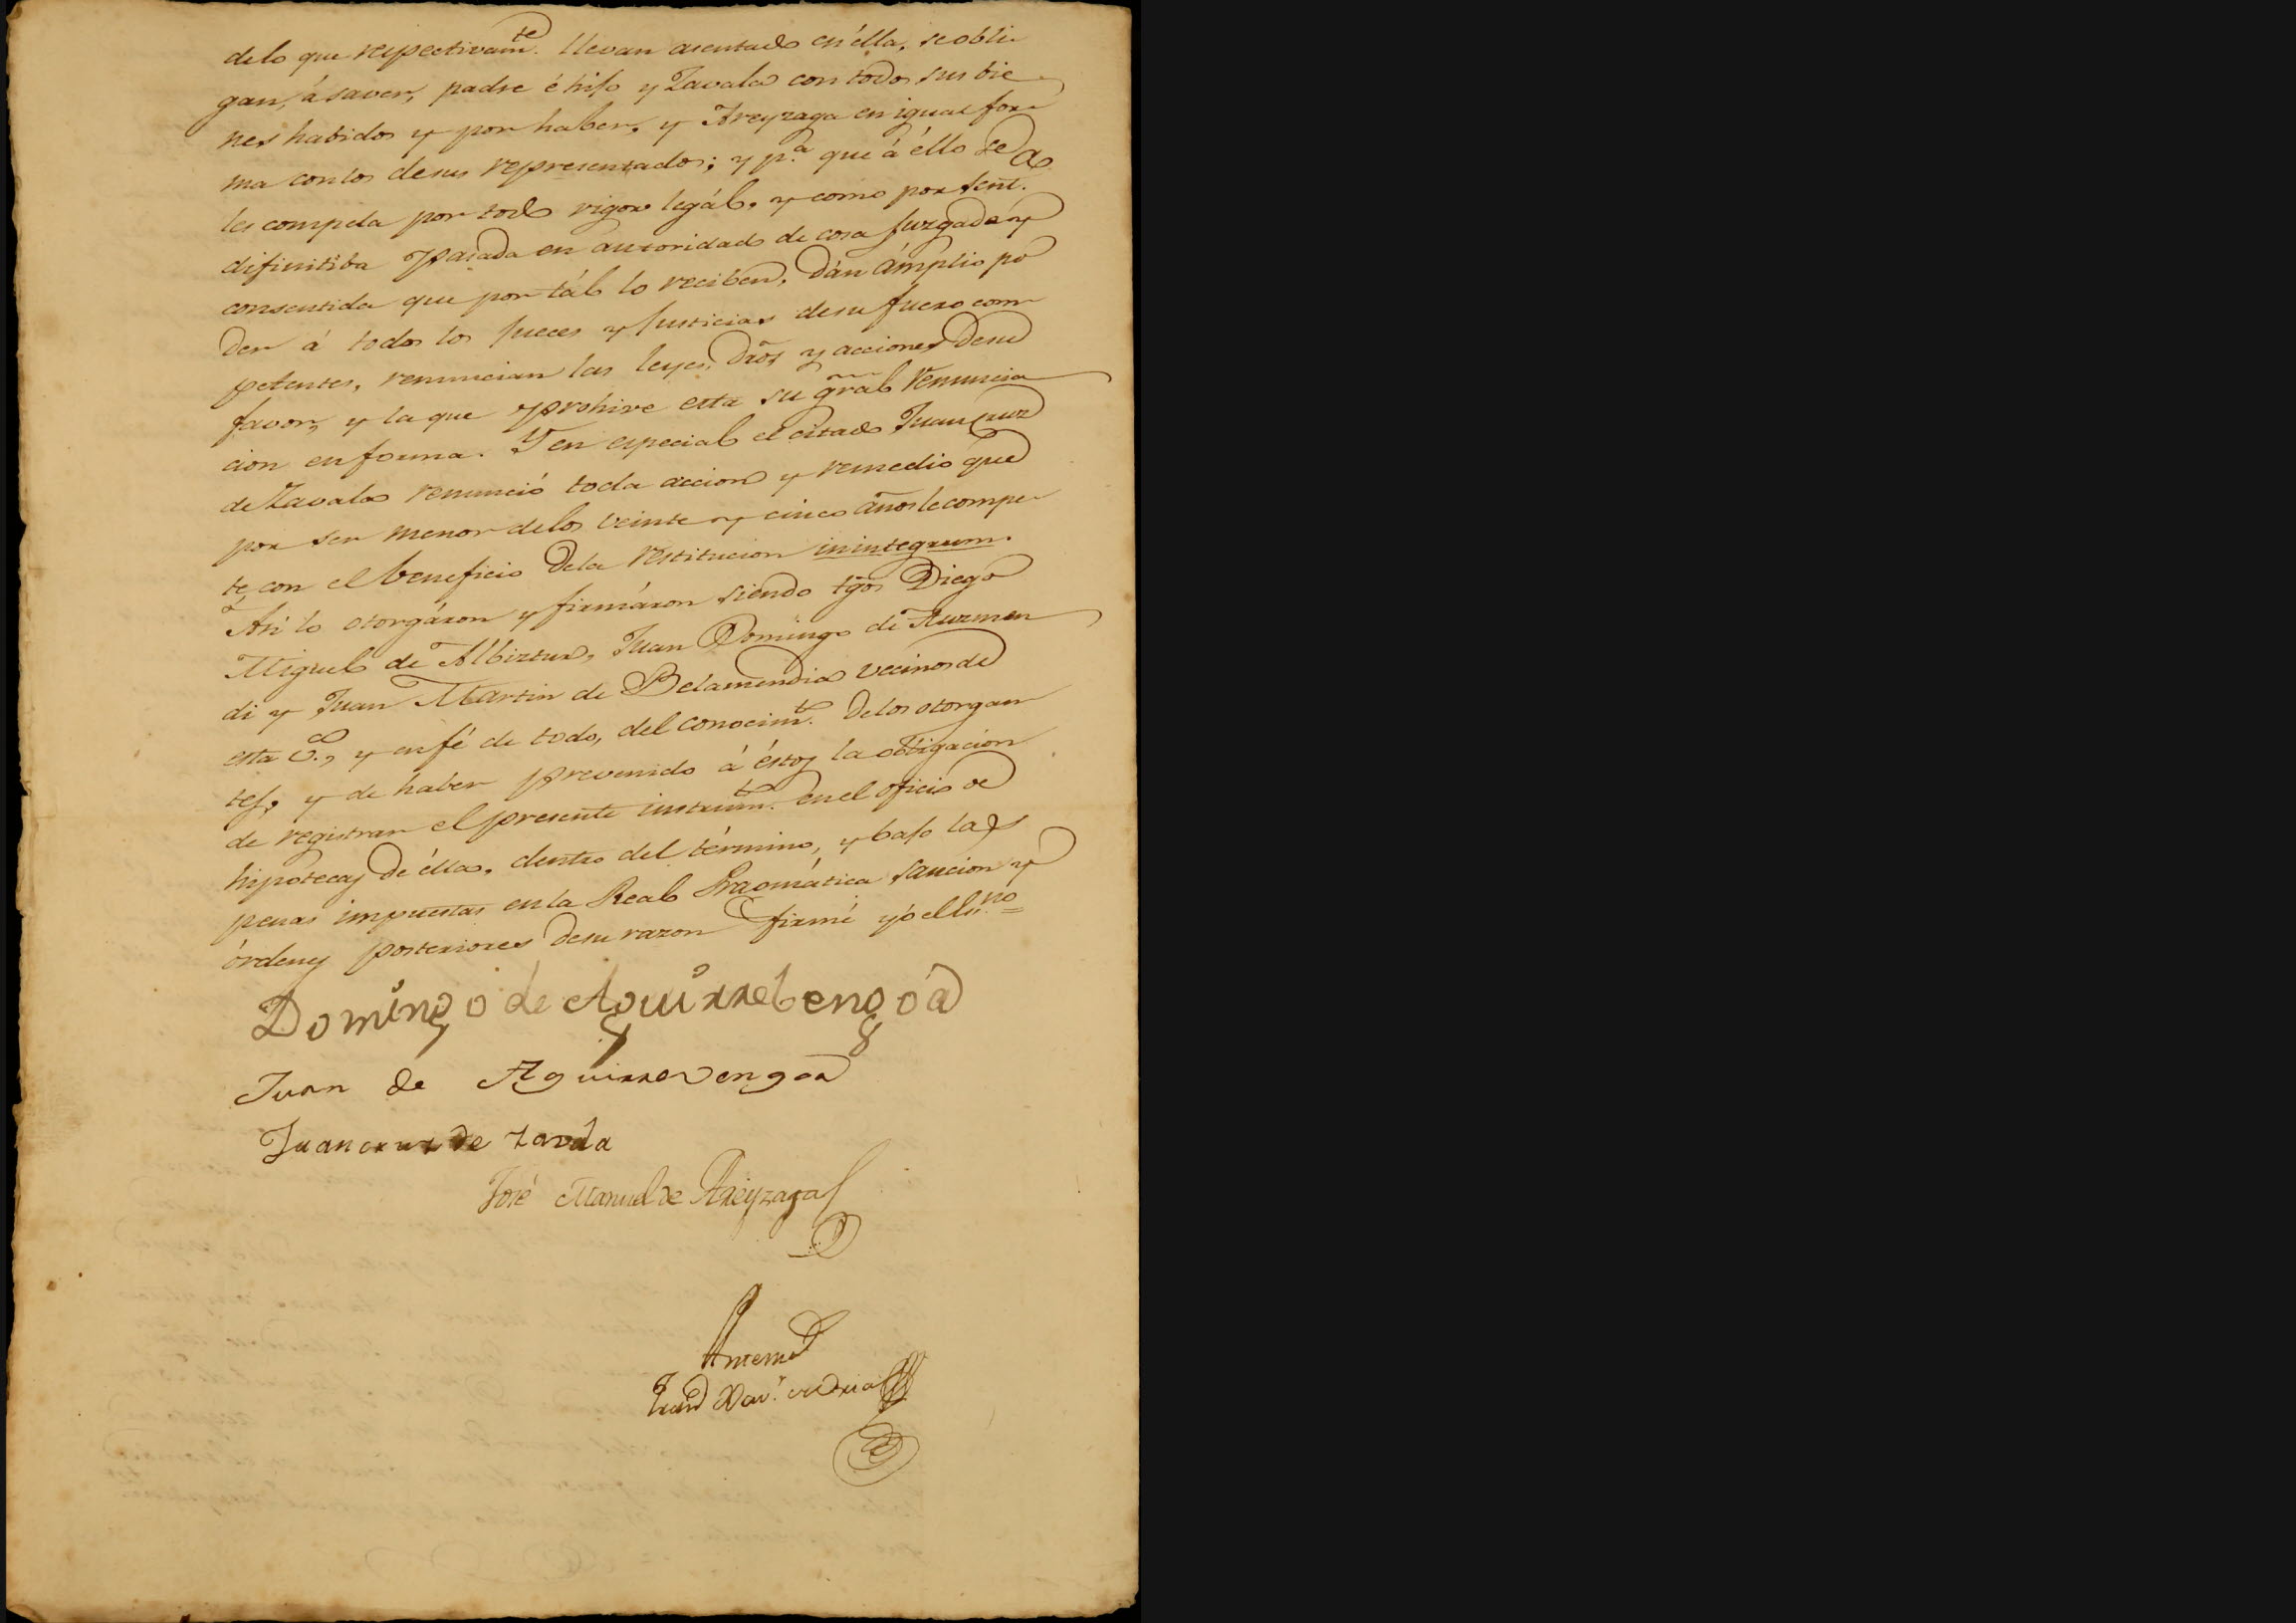 de lo que respectivamte. llevan asentado en élla, se obli-
gan, á saver, padre é hijo y Zavala con todos sus bie-
nes habidos y por haber, y Areyzaga en igual for-
ma con los de sus representados; y pa. que á éllo se
les compela por todo rigor legál, y como por sent.
difinitiba pasada en autoridad de cosa juzgada y
consentida que por tál lo reciben, dán ámplio po
der á todos los Jueces y Justicias de su fuero com-
petentes, renuncian las leyes, dros y acciones de su
favor, y la que prohive esta su gral renuncia
cion en forma. Y en especial el citado Juan Cruz
de Zavala renunció toda accion y remedio que
por ser menor de los veinte y cinco años le compe-
te, con el beneficio de la restitucion in integrum.
Asi lo otorgáron y firmáron siendo tgos Diego
Miguel de Albiztur, Juan Domingo de Auzmen
di y Juan Martin de Belamendia vecinos de
esta Ca., y en fé de todo, del conocimto. de los otorgan
tes, y de haber prevenido á éstos la obligacion
de registrar el presente instrumto. en el oficio de
hipotecas de élla, dentro del término, y bajo las
penas impuestas en la Real Pragmática sancion y
órdenes posteriores de su razon firmé yo el Esno. =
Domingo de Aguirrebengoa
Juan de Aguirrevengoa
Juan cruz de zavala
José Manuel de Areyzaga
Ante mi
Juan Xavr.